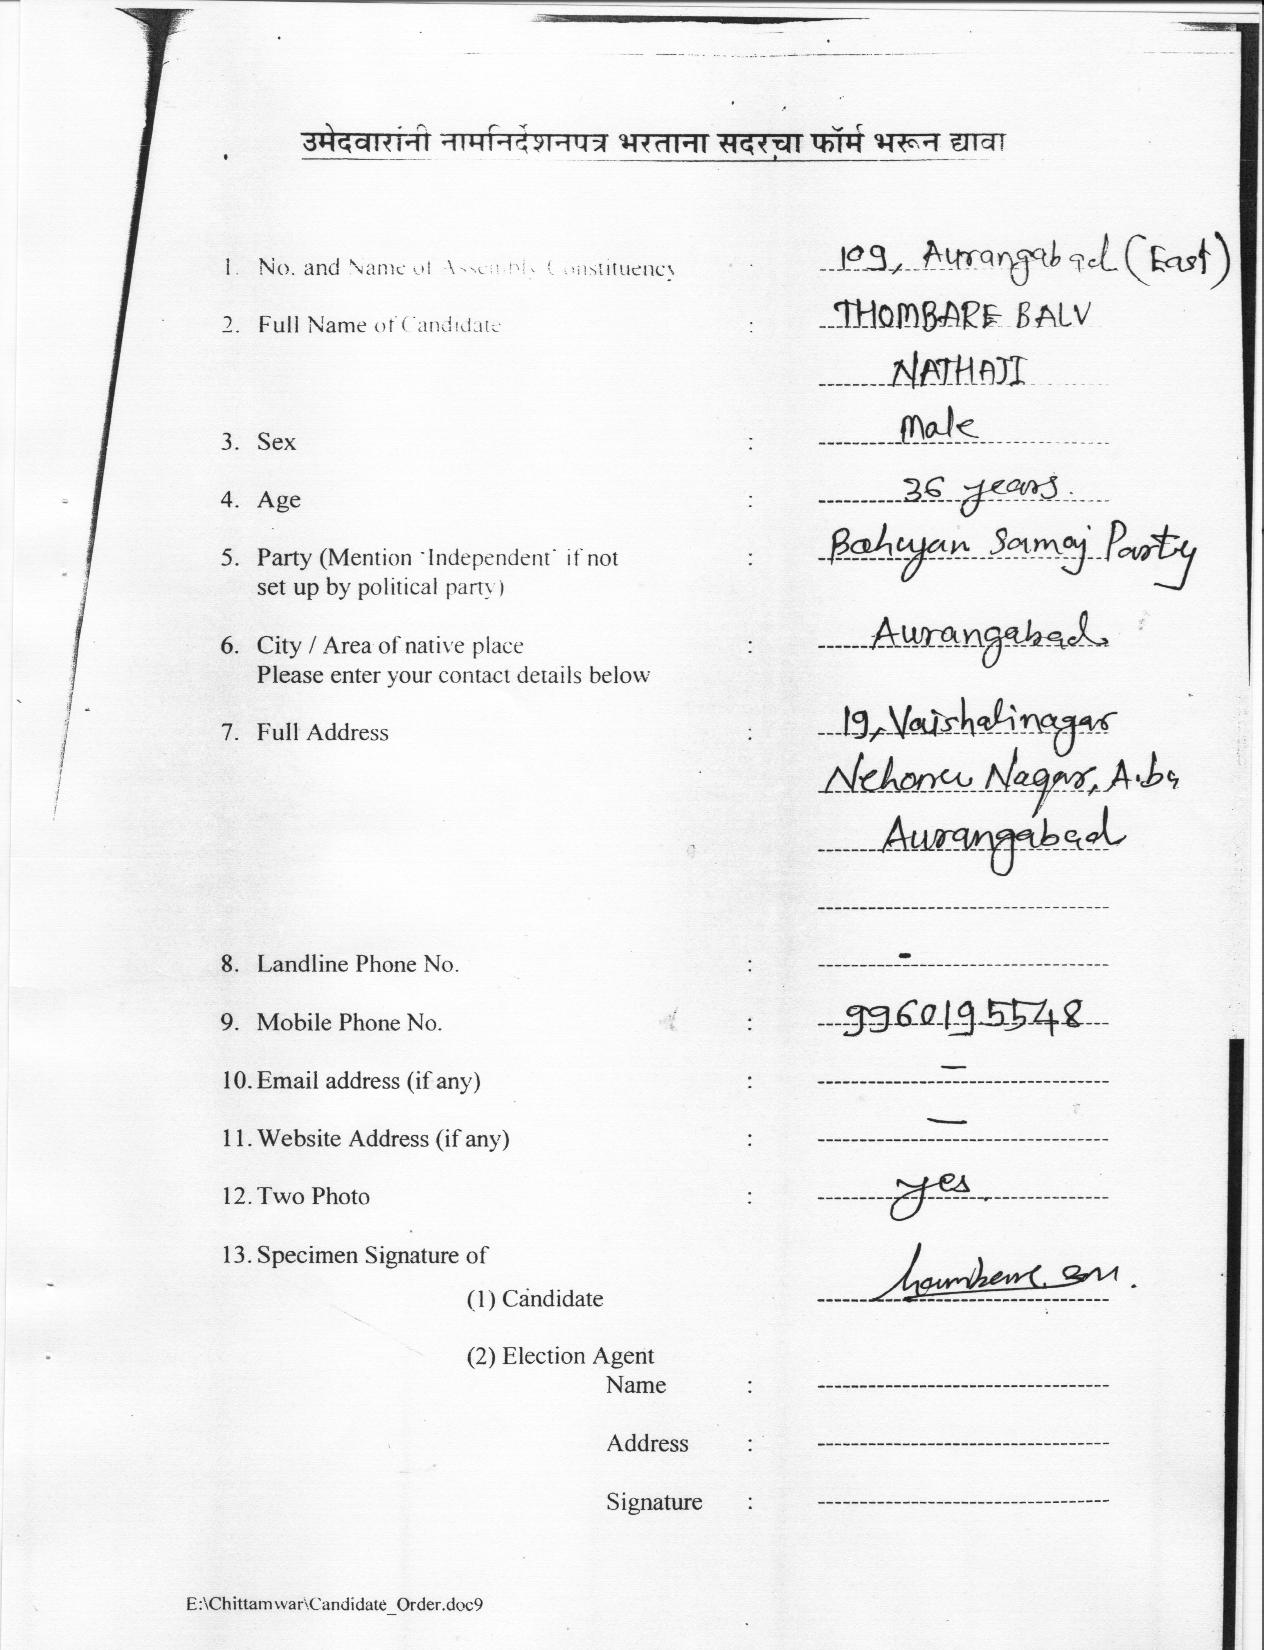 उमेदवारांनी नामनिर्देशनपत्र भरताना सदरचा फॉर्म भरून द्यावा
1. No. and Name of Assembly Constituency : 109, Aurangabad (East)
2. Full Name of Candidate : THOMBARE BALV
NATHAJI
3. Sex : Male
4. Age : 36 years.
5. Party (Mention 'Independent' if not : Bahujan Samaj Party
set up by political party)
6. City / Area of native place : Aurangabad
Please enter your contact details below
7. Full Address : 19, Vaishalinagar
Neharu Nagar, A.bq
Aurangabad
8. Landline Phone No. : -
9. Mobile Phone No. : 9960195548
10. Email address (if any) : —
11. Website Address (if any) : —
12. Two Photo : yes.
13. Specimen Signature of
(1) Candidate
(2) Election Agent
Name :
Address :
Signature :
E:\Chittamwar\Candidate_Order.doc9